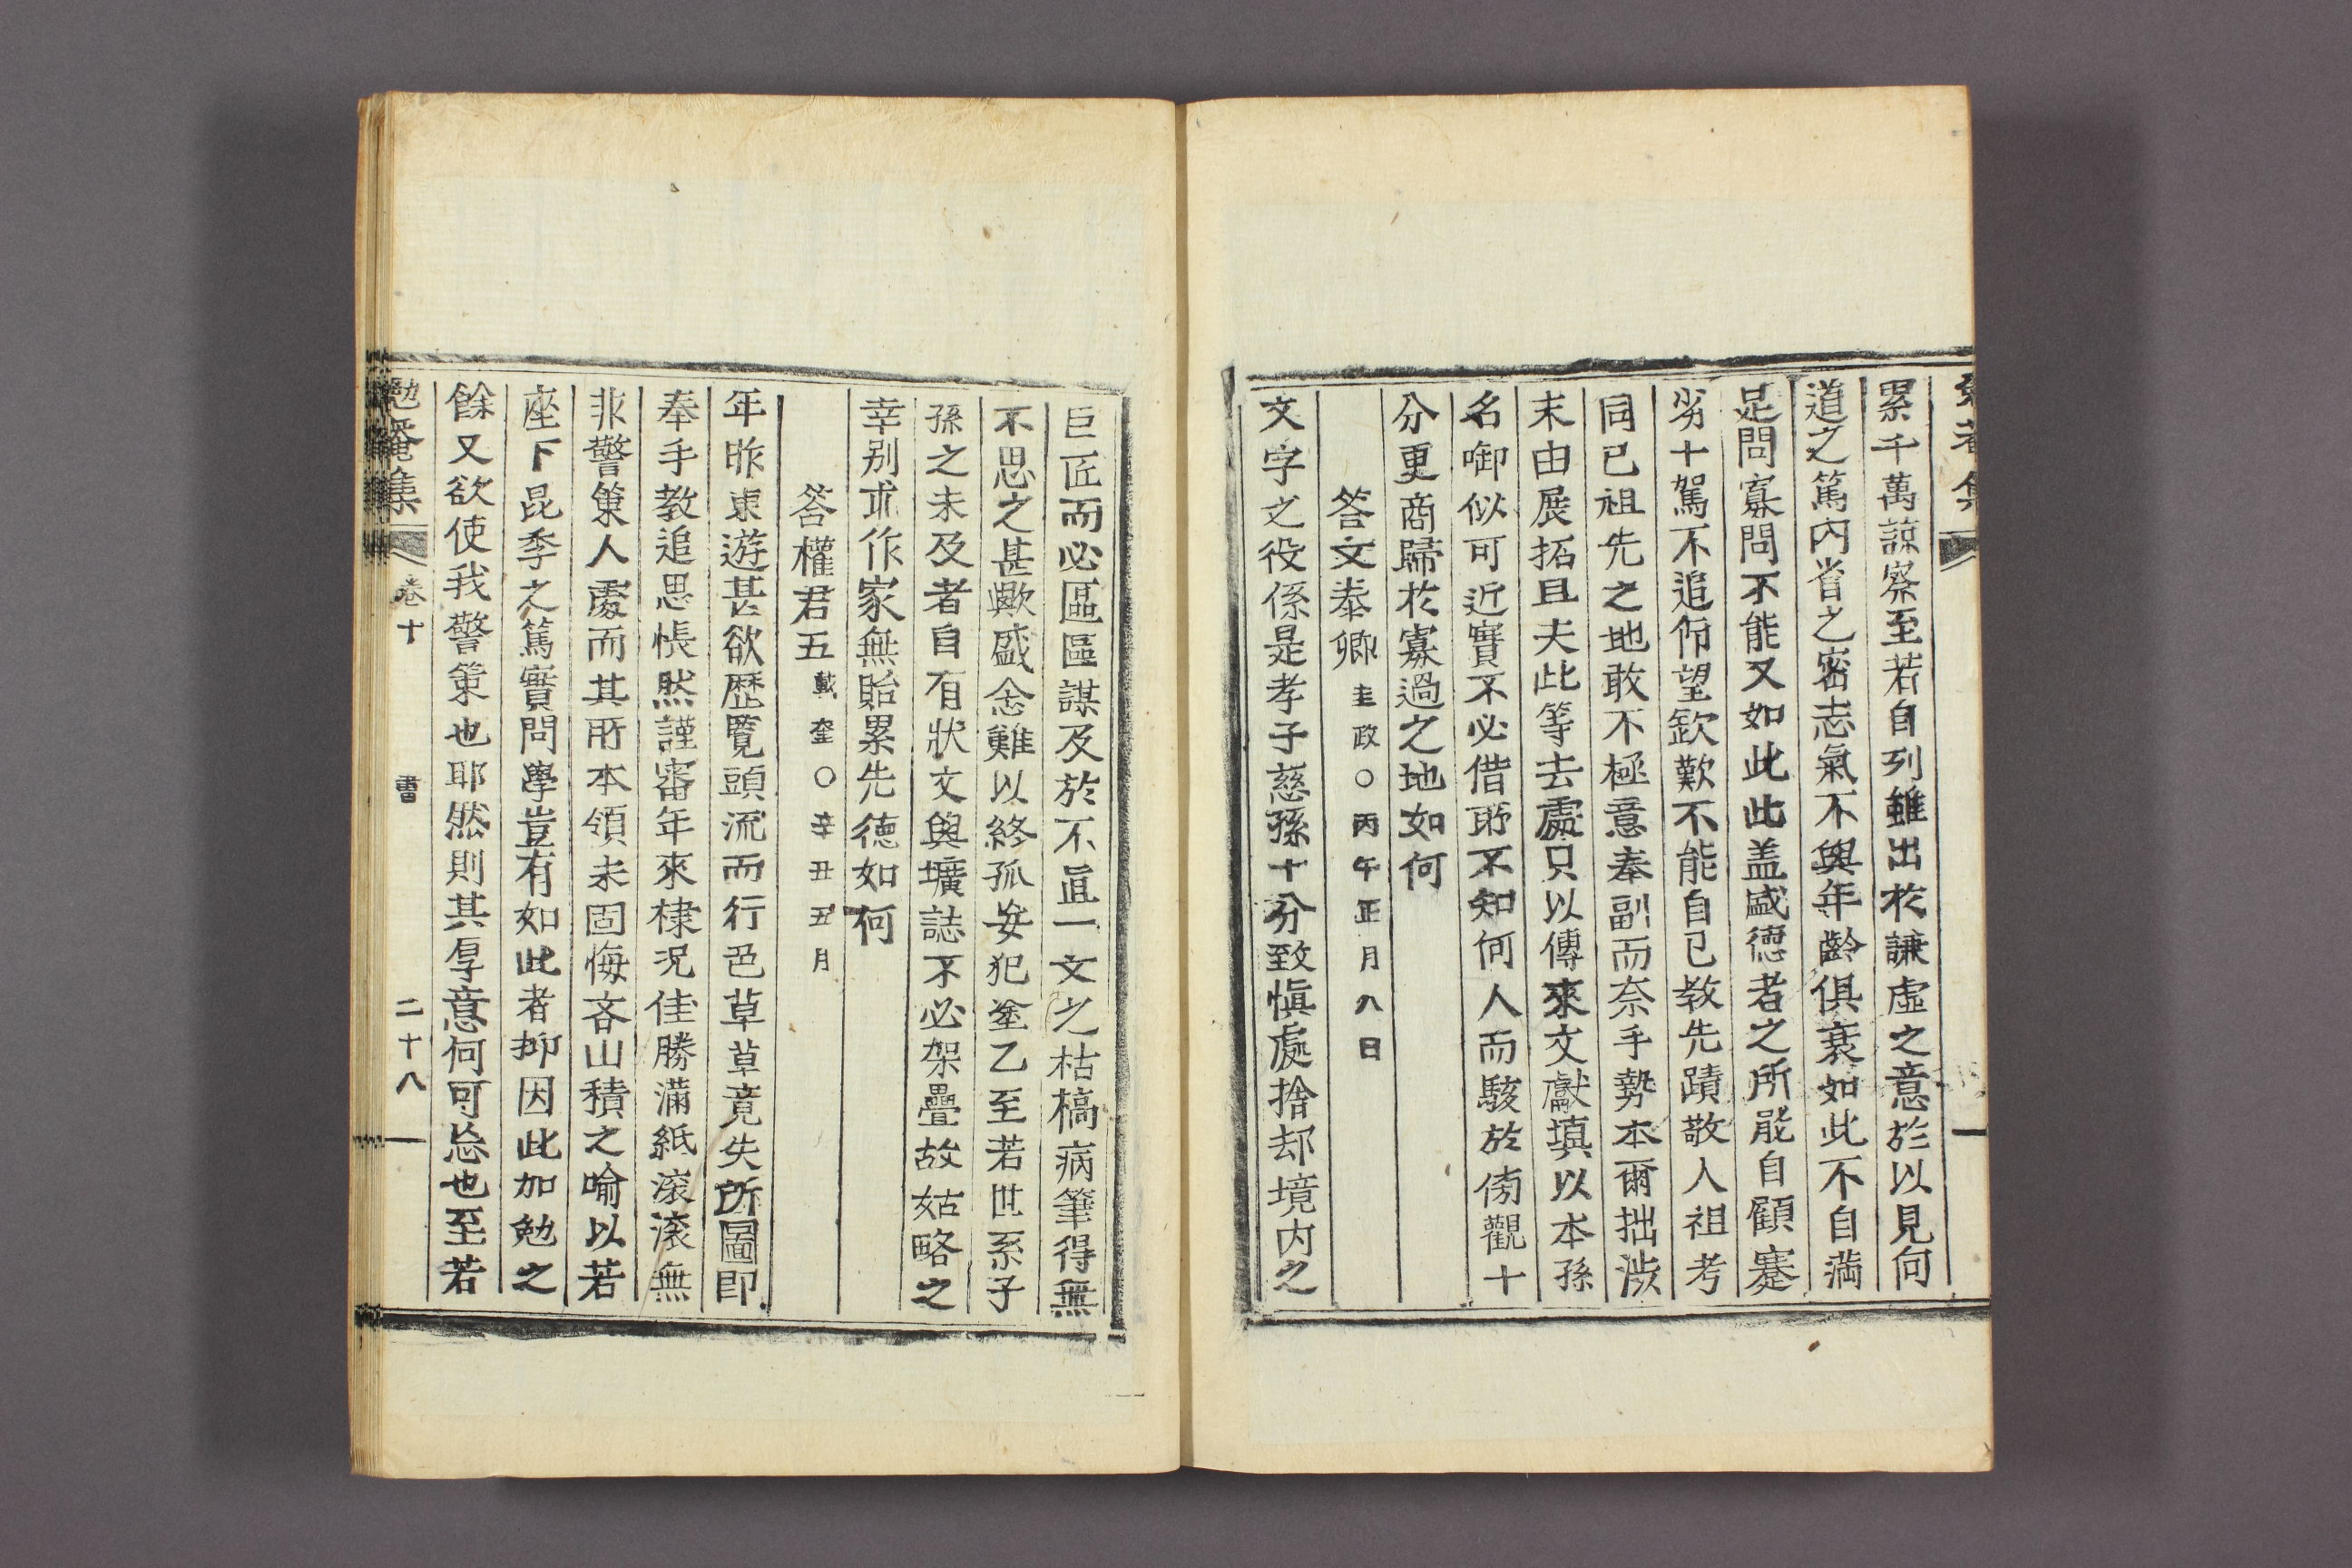 累千萬諒察至若自列雖出於謙虛之意於以見向
道之篤內省之密志氣不與年齡俱衰如此不自滿
足問寡問不能又如此此盖盛德者之所能自顧蹇
劣十駕不追仰望欽歎不能自已教先蹟敬人祖考
同已祖先之地敢不極意奉副而奈手勢本爾拙澁
末由展拓且夫此等去處只以傳來文獻塡以本孫
名啣似可近實不必借耶不知何人而駭於傍觀十
分更商歸於寡過之地如何
答文泰卿 圭政○丙午正月八日
文字之役係是孝子慈孫十分致愼處捨却境内之
巨匠而必區區謀及於不眞一文之枯槁病筆得無
不思之甚歟盛念難以終孤妄犯塗乙至若世系子
孫之未及者自有狀文與壙誌不必架疊故姑略之
幸别求作家無貽累先德如何
答權君五 載奎○辛丑五月
年昨東遊甚欲歷覽頭流而行邑草草竟失所圖即
奉手教追思悵然謹審年來棣况佳勝滿紙滚滚無
非警策人處而其所本領未固悔吝山積之喩以若
座下昆季之篤實問學豈有如此者抑因此加勉之
餘又欲使我警策也耶然則其厚意何可忘也至若
勉菴集 卷十 書 二十八